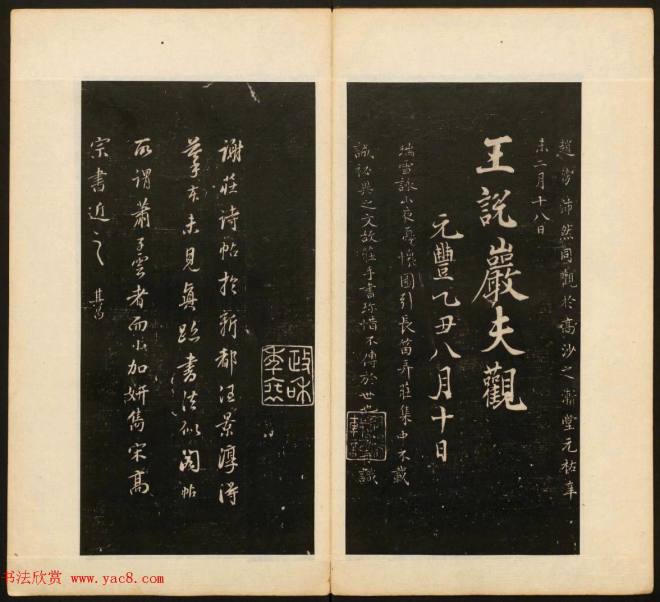 趙 沛然同觀於高沙之 堂元祐辛
未二月十八日
王說巖夫觀
元豐乙丑八月十日
瑞雪詠小哀憂懷園引長笛弄莊集中不載
誠祕典之文故莊手書珍惜不傳於世也 識
政和
謝莊詩帖於新都汪景淳得
摹本未見真跡書法似閣帖
所謂蕭子雲者而小加妍雋宋高
宗書近之 其昌
书法欣赏 www.yac8.com